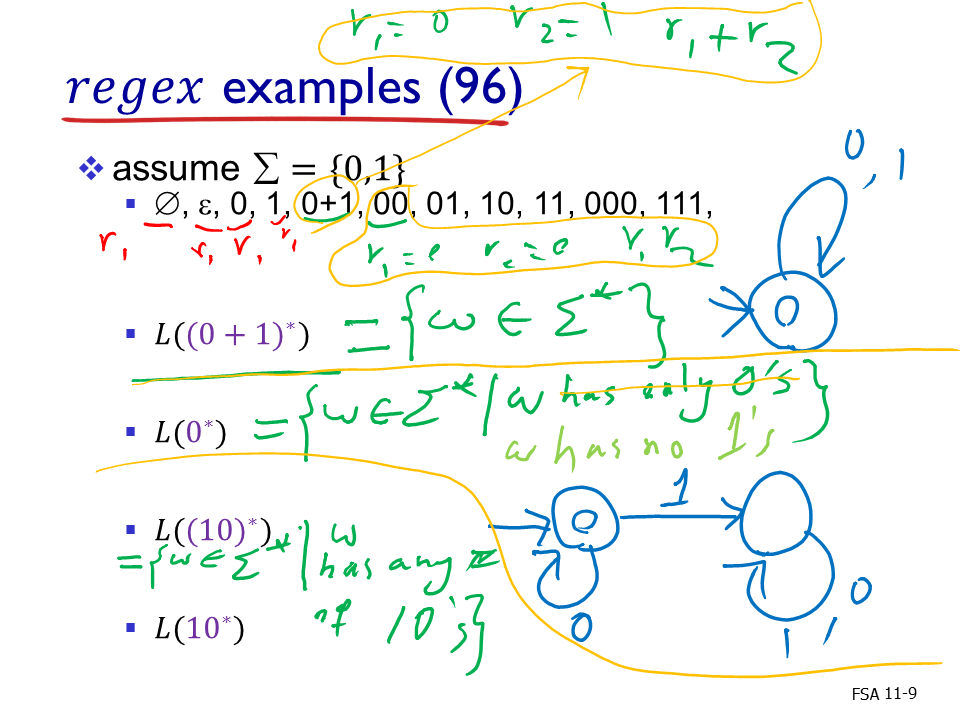 r₁ = 0 r₂ = 1 r₁ + r₂
regex examples (96)
❖ assume Σ = {0,1}
▪ ∅, ε, 0, 1, 0+1, 00, 01, 10, 11, 000, 111,
r₁ r₁ r₁ r₁
r₁ = 0 r₂ = 0 r₁ r₂
0, 1
0
▪ L((0 + 1)*) = {w ∈ Σ*}
▪ L(0*) = {w ∈ Σ* | w has only 0's}
w has no 1's
1
▪ L((10)*)
= {w ∈ Σ* | w has any #
of 10's}
0
0
1, 0
▪ L(10*)
FSA 11-9